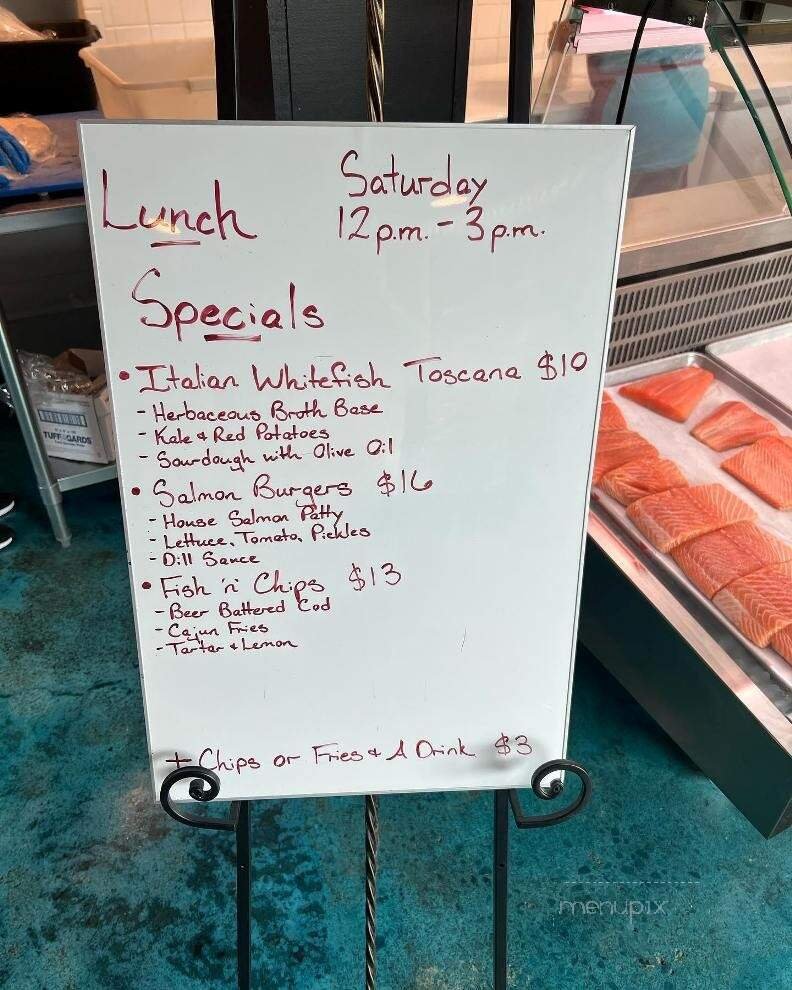 Lunch
Saturday
12 p.m. - 3 p.m.
Specials
• Italian Whitefish Toscana $10
- Herbaceous Broth Base
- Kale & Red Potatoes
- Sourdough with Olive Oil
• Salmon Burgers $16
- House Salmon Patty
- Lettuce, Tomato, Pickles
- Dill Sauce
• Fish 'n' Chips $13
- Beer Battered Cod
- Cajun Fries
- Tartar & Lemon
+ Chips or Fries & A Drink $3
TUFF GARDS
menupix